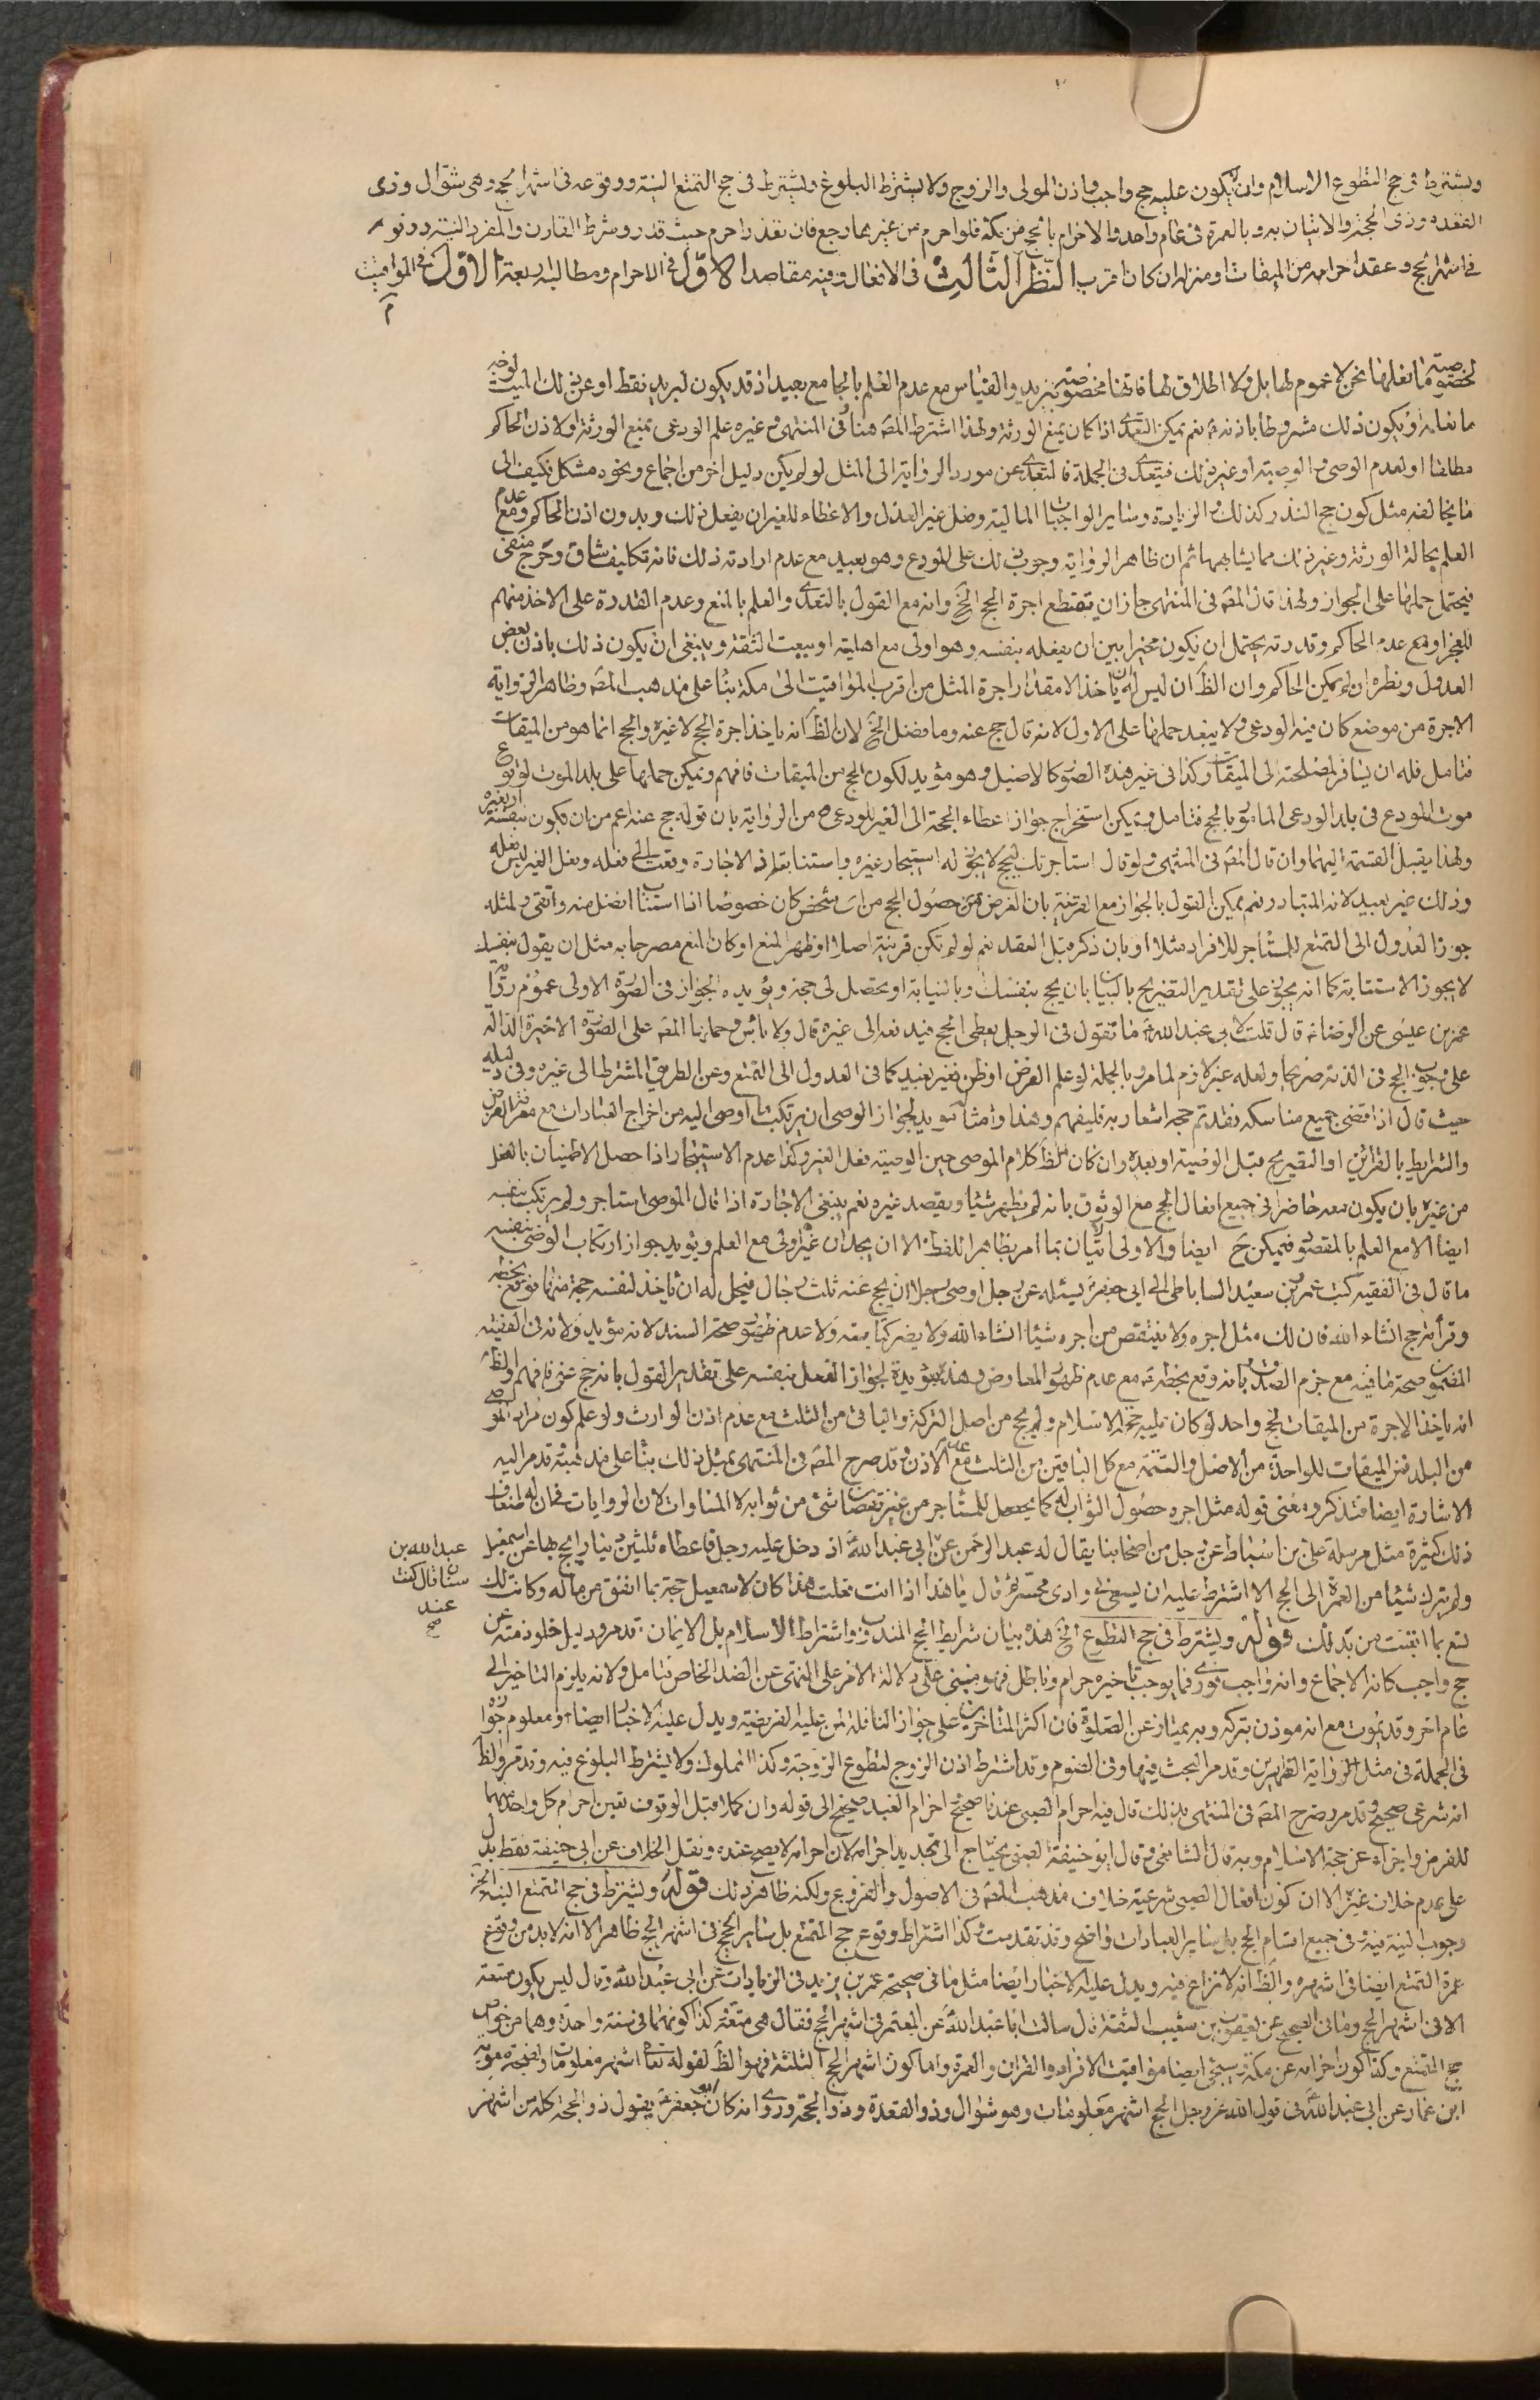 ويشترط في حج التطوع الاسلام وان لا يكون عليه حج واجب واذن المولى والزوج ولا يشترط البلوغ ويشترط في حج التمتع النية ووقوعه في اشهر الحج وهي شوال وذى
القعدة وذى الحجة والاتيان به وبالعمرة في عام واحد والاحرام بالحج من مكة فلو احرم من غيرها رجع فان تعذر احرم حيث قدر وشرط القارن والمفرد النية ووقوعه
في اشهر الحج وعقد احرامه من الميقات او منزله ان كان اقرب النظر الثالث في الافعال وفيه مقاصد الاول في الاحرام ومطالبه اربعة الاول في المواقيت
لخصوصية ما نعلمها نحن لا عموم لها بل ولا اطلاق لها فانها مخصوصة ببريد والقياس مع عدم العلم بالجامع بعيد اذ قد يكون لبريد فقط او عن ذلك الميت
ما نعلمه او يكون ذلك مشروطا باذنه نعم يمكن التعدى اذا كان يمنع الورثة ولهذا اشترط المصه هنا وفى المنتهى وغيره علم الودعى بمنع الورثة او لاذن الحاكم
مطلقا او لعدم الوصى فى الوصية او غير ذلك فيتعدى في الجملة فالتعدى عن مورد الرواية الى المثل لو لم يكن دليل اخر من اجماع ونحوه مشكل فكيف الى
ما يخالفه مثل كون حج النذر كذلك والزيارة وساير الواجبات المالية وفعل غير العدل والاعطاء للغير ان يفعل ذلك وبدون اذن الحاكم ومع عدم
العلم بحالة الورثة وغير ذلك مما يشابهها ثم ان ظاهر الرواية وجوب ذلك على المودع وهو بعيد مع عدم ارادته ذلك فانه تكليف شاق وحرج منفى
فيحتمل حملها على الجواز ولهذا قال المصه فى المنتهى جاز ان يقتطع اجرة الحج الخ وانه مع القول بالتعدى والعلم بالمنع وعدم القدرة على الاخذ منهم
للعجز او مع عدم الحاكم وقدرته يحتمل ان يكون مخيرا بين ان يفعله بنفسه وهو اولى مع اهليته او يبعث الثقة وينبغى ان يكون ذلك باذن بعض
العدول ونظره ان لم يمكن الحاكم وان الظ ان ليس له ان ياخذ الا مقدار اجرة المثل من اقرب المواقيت الى مكة بناء على مذهب المصه وظاهر الرواية
الاجرة من موضع كان فيه الودعى ولا يبعد حملها على الاول لانه قال حج عنه وما فضل الخ لان الظ انه ياخذ اجرة الحج لا غيره والحج انما هو من الميقات
فتامل فله ان يسافر لمصلحته الى الميقات وكذا فى غير هذه الصوكالاصيل وهو مؤيد لكون الحج من الميقات فافهم ويمكن حملها على بلد الموت لوقوع
موت المودع فى بلد الودعى المامور بالحج فتامل ويمكن استخراج جواز اعطاء الحجة الى الغير للودعى من الرواية بان قوله حج عنه اعم من ان يكون بنفسه او بغيره
ولهذا يقبل القسمة اليهما وان قال المصه فى المنتهى ولو قال استاجرتك لتحج لا يجوز له استيجار غيره
وذلك غير بعيد لانه المتبادر نعم يمكن القول بالجواز مع القرينة بان الغرض حصول الحج من اى شخص كان خصوصا اذا استناب افضل منه واتقى ولمثله
جوز العدول الى التمتع للمستاجر للافراد مثلا او بان ذكر قبل العقد نعم لو لم تكن قرينة اصلا او ظهر المنع او كان المنع مصرحا به مثل ان يقول بنفسك
لا يجوز الاستنابة كما انه يجوز على تقدير التصريح بالبيان بان يحج بنفسك وبالنيابة او تحصل لى حجة ويؤيده الجواز فى الصورة الاولى عموم رواية
عمر بن عيسى عن الرضا ع قال قلت لابى عبد الله ع ما تقول فى الرجل يعطى الحج فيدفعه الى غيره قال ولا باس وحملها المصه على الصورة الاخيرة الدالة
على وجوب الحج فى الذمة صريحا ولعله غير لازم لما مر وبالجملة لو علم الغرض او ظن فغير بعيد كما فى العدول الى التمتع وعن الطريق المشترط الى غيره وفى دليله
حيث قال اذا قضى جميع مناسكه فقد تم حجه اشعار به فليفهم وهذا وامثاله مؤيد لجواز الوصى ان يرتكب ما اوصى اليه من اخراج العبادات مع معرفة الغرض
والشرايط بالقرائن او التصريح قبل الوصية او بعده وان كان الظ كلام الموصى حين الوصية فعل الغير وكذا عدم الاستيجار اذا حصل الاطمينان بالفعل
من غيره بان يكون معه حاضرا فى جميع افعال الحج مع الوثوق بانه لم يظهر شيئا ويقصد غيره نعم ينبغى الاجارة اذا قال الموصى استاجر ولم يرتكب بنفسه
ايضا الا مع العلم بالمقصود فيمكن ح ايضا والاولى الاتيان بما امر بظاهر اللفظ الا ان يجد ان غيره اولى مع العلم ويؤيد جواز ارتكاب الوصى بنفسه
ما قال فى الفقيه كتب عمرو بن سعيد الساباطى الى ابى جعفر ع يسئله عن رجل اوصى رجلا ان يحج عنه ثلث رجال فيحل له ان ياخذ لنفسه حجة منها فوقع بخطه
وقرأته حج انشاء الله فان لك مثل اجره ولا ينتقص من اجره شيئا انشاء الله ولا يضر كتابته ولا عدم ظهور صحة السند لانه مؤيد ولانه فى الفقيه
المضمون صحة ما فيه مع جزم الصدوق بانه وقع بخطه مع عدم ظهور المعارض وهذه مؤيدة لجواز الفعل بنفسه على تقدير القول بانه حج عنى فافهم والظ
انه ياخذ الاجرة من الميقات لحج واحد لو كان عليه حجة الاسلام ولم يحج من اصل التركة والباقى من الثلث مع عدم اذن الوارث ولو علم كون مراد الموصى
من البلد فمن الميقات للواحدة من الاصل والتتمة مع كل الباقين من الثلث مع عدم الاذن وقد صرح المصه فى المنتهى بمثل ذلك بناء على مذهبه قدمر اليه
الاشارة ايضا فتذكر ومعنى قوله مثل اجره حصول الثواب له كما يحصل للمستاجر من غير نقصان شئ من ثوابه لا المساوات لان الروايات فى ان له اضعاف
ذلك كثيرة مثل مرسلة على بن اسباط عن رجل من اصحابنا يقال له عبد الرحمن عن ابى عبد الله ع اذ دخل عليه رجل فاعطاه ثلثين دينارا يحج بها عن اسمعيل
عبد الله بن
سنان قال كنت
عند
صح
ولم يترك شيئا من العمرة الى الحج الا اشترط عليه ان يسعى فى وادى محسر ثم قال يا هذا اذا انت فعلت هذا كان لاسمعيل حجة بما انفق من ماله وكانت لك
تسع بما اتعبت من بدنك قوله ويشترط فى حج التطوع الخ هذه بيان شرايط الحج المندوب واشتراط الاسلام بل الايمان قد مر ودليل خلو ذمته عن
حج واجب كانه الاجماع وانه واجب فورى فما يوجب تاخيره حرام وباطل فهو مبنى على دلالة الامر على النهى عن الضد الخاص فتامل ولانه يلزم التاخير الى
عام اخر وقد يموت مع انه موذن بتركه وبه يمتاز عن الصلوة فان اكثر المتاخرين على جواز النافلة لمن عليه الفريضة ويدل عليه الاخبار ايضا ومعلوم جوازه
فى الجملة فى مثل الرواتب الظهرين وقد مر البحث فيها وفى الصوم وقد اشترط اذن الزوج لتطوع الزوجة وكذا المملوك ولا يشترط البلوغ فيه وقد مر والظ
انه شرعى صحيح وقد مر وصرح المصه فى المنتهى بذلك قال فيه احرام الصبى عندنا صحيح احرام العبد صحيح الى قوله وان كملا قبل الوقوف تعين احرام كل واحد منهما
للفرض واجزاء عن حجة الاسلام وبه قال الشافعى وقال ابو حنيفة الصبى يحتاج الى تجديد احرام لان احرامه لا يصح عنده ونقل الخلاف عن ابى حنيفة فقط يدل
على عدم خلاف غيره الا ان كون افعال الصبى شرعية خلاف مذهب المصه فى الاصول والفروع ولكنه ظاهر ذلك قوله ويشترط فى حج التمتع النية الخ
وجوب النية فيه وفى جميع اقسام الحج بل ساير العبادات واضح وقد تقدمت وكذا اشتراط وقوع حج التمتع بل ساير الحج فى اشهر الحج ظاهر الا انه لابد من وقوع
عمرة التمتع ايضا فى اشهره والظ انه لا نزاع فيه ويدل عليه الاخبار ايضا مثل ما فى صحيحة عمر بن يزيد فى الزيادات عن ابى عبد الله ع وقال ليس يكون متعة
الا فى اشهر الحج وما فى الصحيح عن يعقوب بن شعيب الثقة قال سالت ابا عبد الله ع عن المعتمر فى اشهر الحج فقال هى متعة وكذا كونهما فى سنة واحدة وهما من خواص
حج التمتع وكذا كون احرامه عن مكة وسيجئ ايضا مواقيت الافراد والقران والعمرة واما كون اشهر الحج الثلثة فهو الظ لقوله تعالى اشهر معلومات وصحيحة معوية
ابن عمار عن ابى عبد الله ع فى قول الله عز وجل الحج اشهر معلومات وهو شوال وذو القعدة وذو الحجة وروى انه كان ابو جعفر ع يقول ذو الحجة كله من اشهر